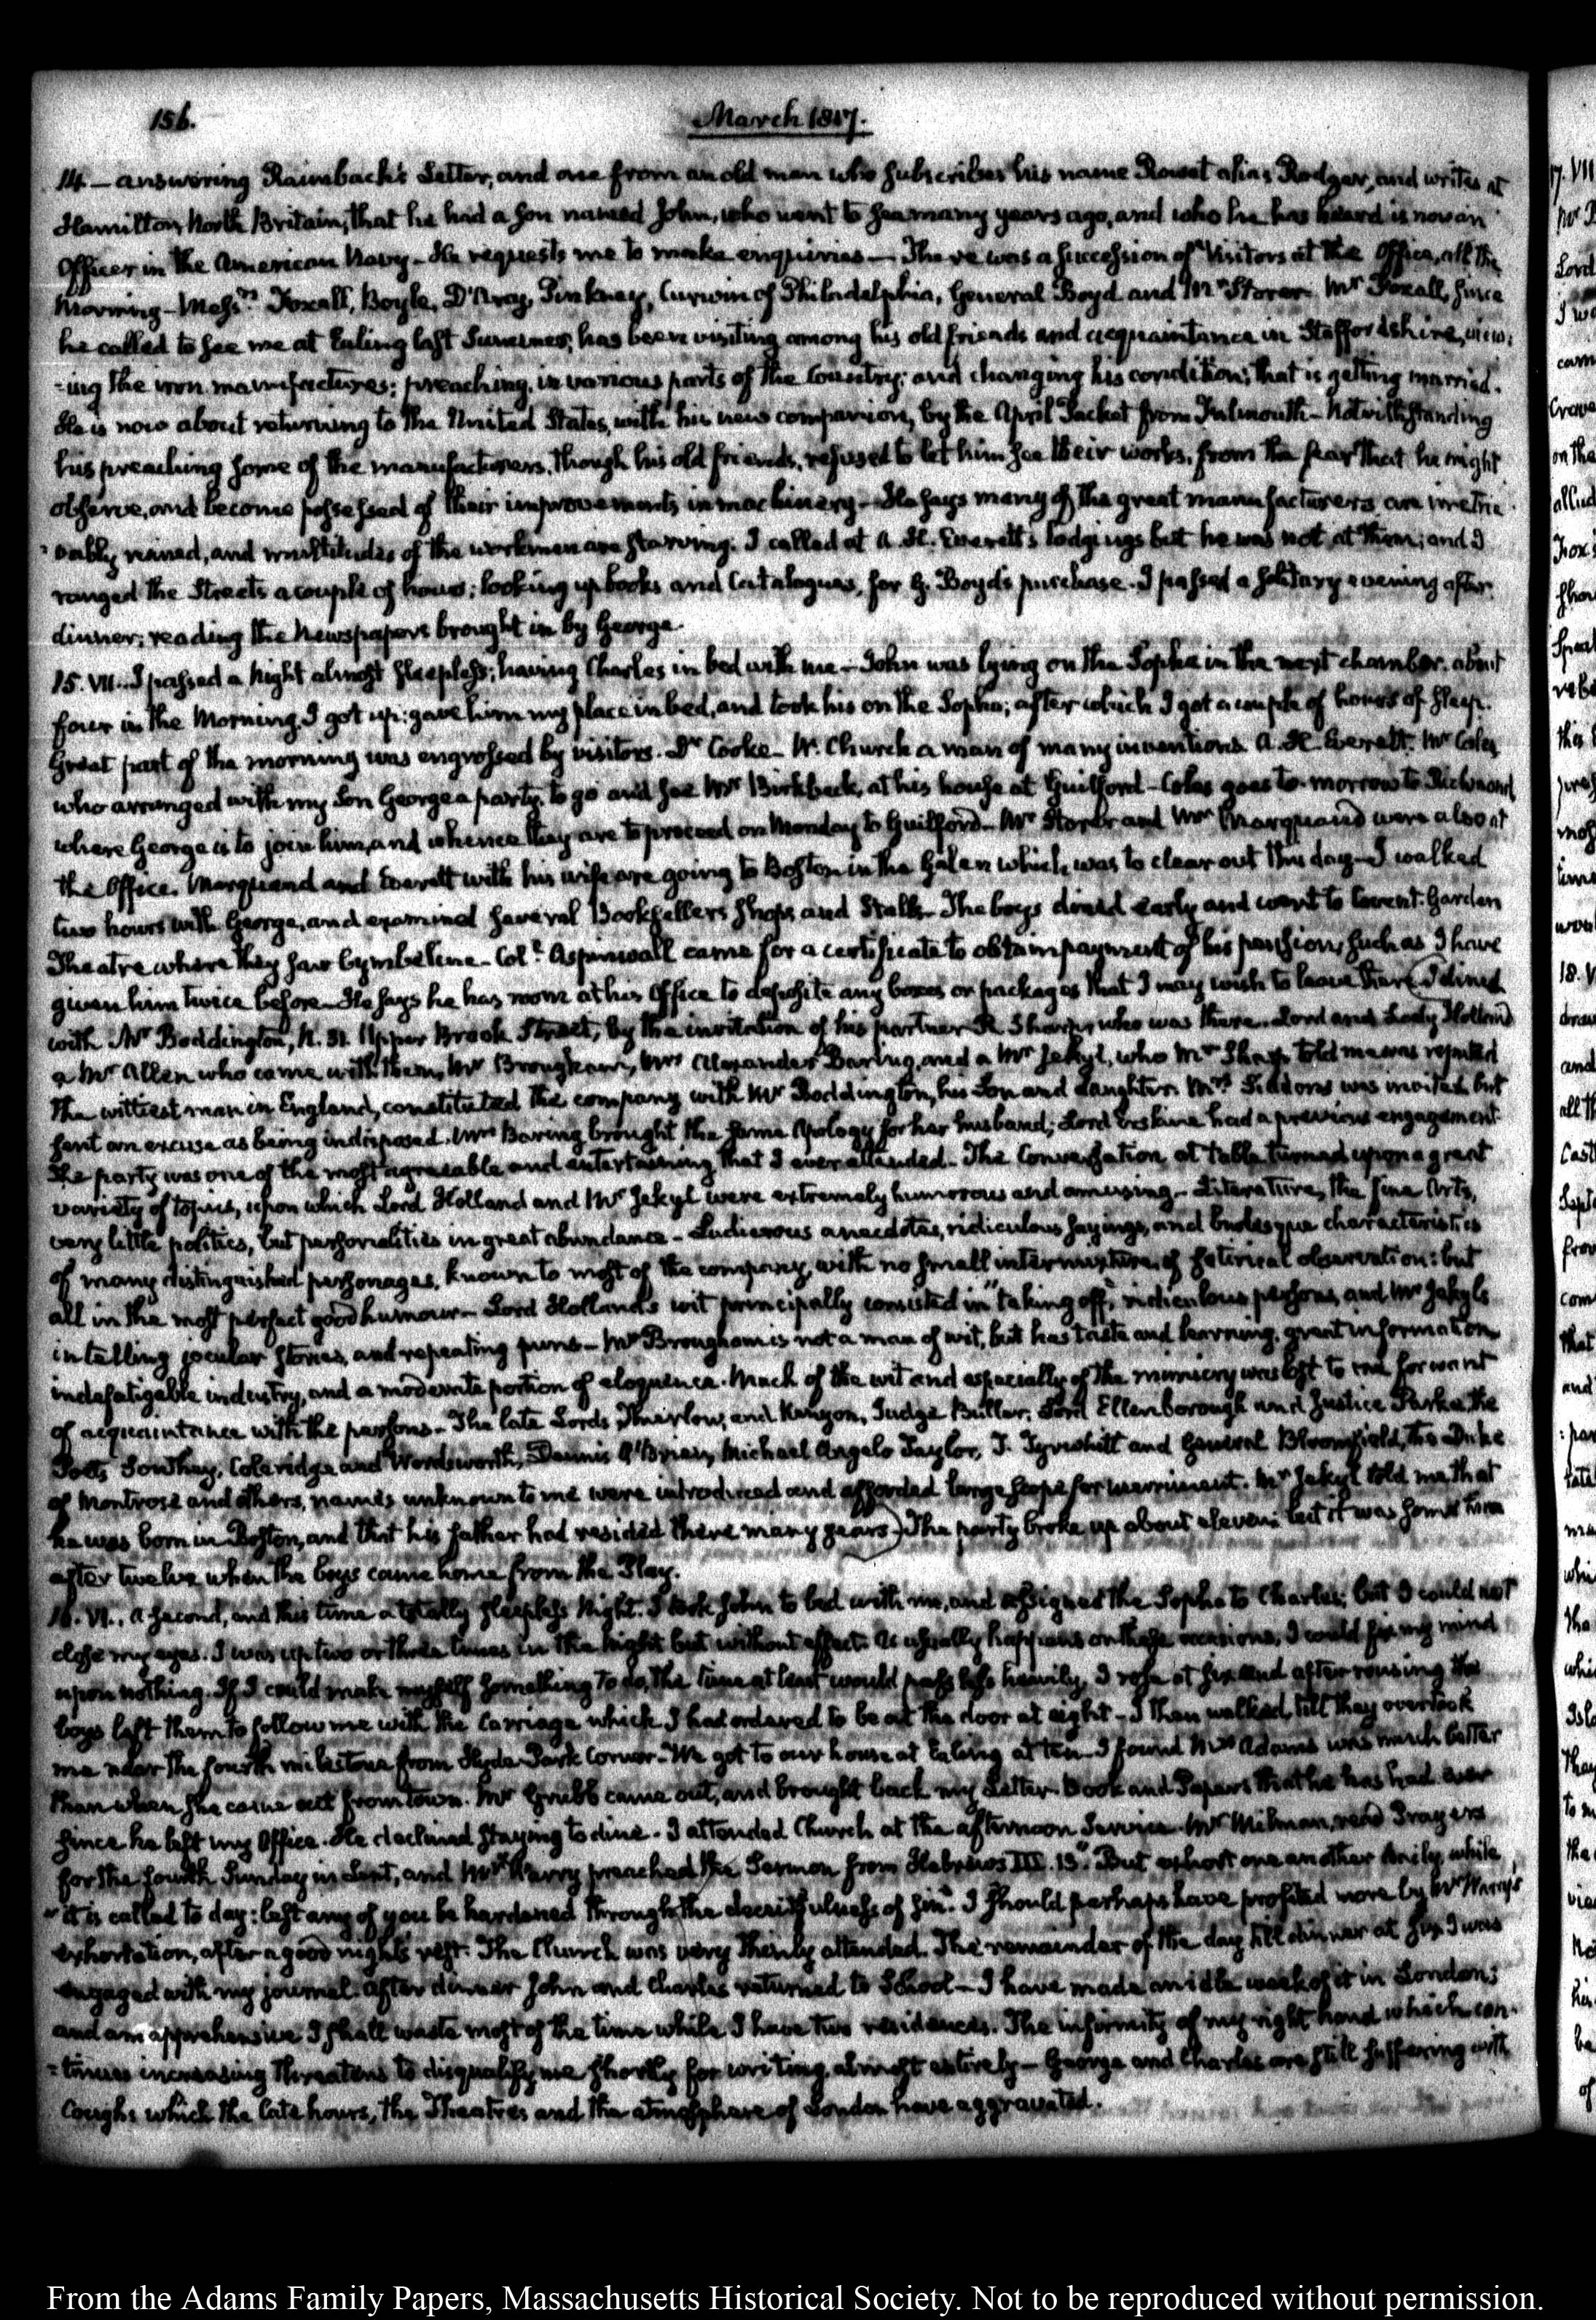 156.
March 1817.
14 — answering Raimbach's Letter, and one from an old man who subscribes his name Rowat alias Rodger, and writes at
Hamilton, North Britain, that he had a son named John, who went to sea many years ago, and who he has heard is now an
Officer in the American Navy — He requests me to make enquiries — There was a succession of Visitors at the Office, all the
Morning — Mess.rs Foxall, Boyle, D'Aray, Pinkney, Curwin of Philadelphia, General Boyd and Mr Storer. Mr Foxall, since
he called to see me at Ealing last Summer, has been visiting among his old friends and acquaintance in Staffordshire, view-
=ing the iron manufactures; preaching, in various parts of the Country; and changing his condition; that is getting married.
He is now about returning to the United States, with his new companion, by the April Packet from Falmouth — Notwithstanding
his preaching some of the manufacturers, though his old friends, refused to let him see their works, from the fear that he might
observe, and become possessed of their improvements in machinery — He says many of the great manufacturers are irretrie-
=vably ruined, and multitudes of the workmen are starving. I called at A. H. Everett's lodgings but he was not at them; and I
ranged the Streets a couple of hours; looking up books and Catalogues, for G. Boyd's purchase. I passed a solitary evening after
dinner; reading the Newspapers brought in by George.
15. VII.. I passed a night almost sleepless; having Charles in bed with me — John was lying on the Sopha in the next chamber. about
four in the Morning, I got up; gave him my place in bed, and took his on the Sopha; after which I got a couple of hours of sleep.
Great part of the morning was engrossed by visitors. Dr Cooke — W. Church a man of many inventions. A. H. Everett. Mr Coles
who arranged with my Son George a party, to go and see Mr Birkbeck, at his house at Guilford — Coles goes to-morrow to Richmond,
where George is to join him, and whence they are to proceed on Monday to Guilford — Mr Storer and Mr Marquand were also at
the Office. Marquand and Everett with his wife are going to Boston in the Galen which was to clear out this day — I walked
two hours with George, and examined several Booksellers shops and Stalls — The boys dined early and went to Covent-Garden
Theatre where they saw Cymbeline — Col.l Aspinwall came for a certificate to obtain payment of his pension, such as I have
given him twice before — He says he has room at his Office to deposite any boxes or packages that I may wish to leave there (I dined
with Mr Boddington, N. 31. Upper Brook Street, by the invitation of his partner R. Sharp, who was there. Lord and Lady Holland
a Mr Allen who came with them, Mr Brougham, Mrs Alexander Baring, and a Mr Jekyl, who Mr Sharp told me was reputed
the wittiest man in England, constituted the company with Mr Boddington, his Son and daughter. Mrs Siddons was invited but
sent an excuse as being indisposed. Mrs Baring brought the same Apology for her husband; Lord Erskine had a previous engagement.
The party was one of the most agreeable and entertaining that I ever attended — The Conversation at table turned upon a great
variety of topics, upon which Lord Holland and Mr Jekyl were extremely humorous and amusing — Literature, the fine Arts,
very little politics, but personalities in great abundance — Ludicrous anecdotes, ridiculous sayings, and burlesque characteristics
of many distinguished personages, known to most of the company, with no small intermixture, of satirical observation: but
all in the most perfect good humour — Lord Holland's wit principally consisted in "taking off," ridiculous persons, and Mr Jekyl's
in telling jocular stories, and repeating puns — Mr Brougham is not a man of wit, but has taste and learning, great information
indefatigable industry, and a moderate portion of eloquence. Much of the wit and especially of the mimicry was lost to me for want
of acquaintance with the persons — The late Lords Thurlow, and Kenyon, Judge Buller, Lord Ellenborough and Justice Parke, the
Poets Southey, Coleridge and Wordsworth, Dennis O'Brien, Michael Angelo Taylor, T. Tyrwhitt and General Bloomfield, the Duke
of Montrose and others, names unknown to me were introduced and afforded large scope for merriment. Mr Jekyl told me that
he was born in Boston, and that his father had resided there many years) — The party broke up about eleven: but it was some time
after twelve when the boys came home from the Play.
16. VI.. A second, and this time a totally sleepless Night. I took John to bed with me, and assigned the Sopha to Charles; but I could not
close my eyes. I was up two or three times in the night but without effect. As usually happens on these occasions, I could fix my mind
upon nothing. If I could make myself something to do, the time at least would pass less heavily. I rose at six and after rousing the
boys left them to follow me with the Carriage which I had ordered to be at the door at eight — I then walked till they overtook
me near the fourth milestone from Hyde-Park Corner — We got to our house at Ealing at ten — I found Mrs Adams was much better
than when she came out from town. Mr Grubb came out, and brought back my Letter-Book and Papers that he has had ever
since he left my Office. He declined staying to dine. I attended Church at the afternoon Service. Mr Milman, read Prayers
for the fourth Sunday in Lent, and Mr Harry preached the Sermon from Hebrews III. 13. "But exhort one another daily while
"it is called to day: lest any of you be hardened through the deceitfulness of sin." I should perhaps have profited more by Mr Harry's
exhortation, after a good night's rest. The Church was very thinly attended. The remainder of the day till dinner at six I was
engaged with my journal. After dinner John and Charles returned to School — I have made an idle week of it in London;
and am apprehensive I shall waste most of the time while I have two residences. The infirmity of my right hand which con-
=tinues increasing threatens to disqualify me shortly for writing, almost entirely — George and Charles are still suffering with
Coughs which the late hours, the Theatres and the atmosphere of London have aggravated.
From the Adams Family Papers, Massachusetts Historical Society. Not to be reproduced without permission.